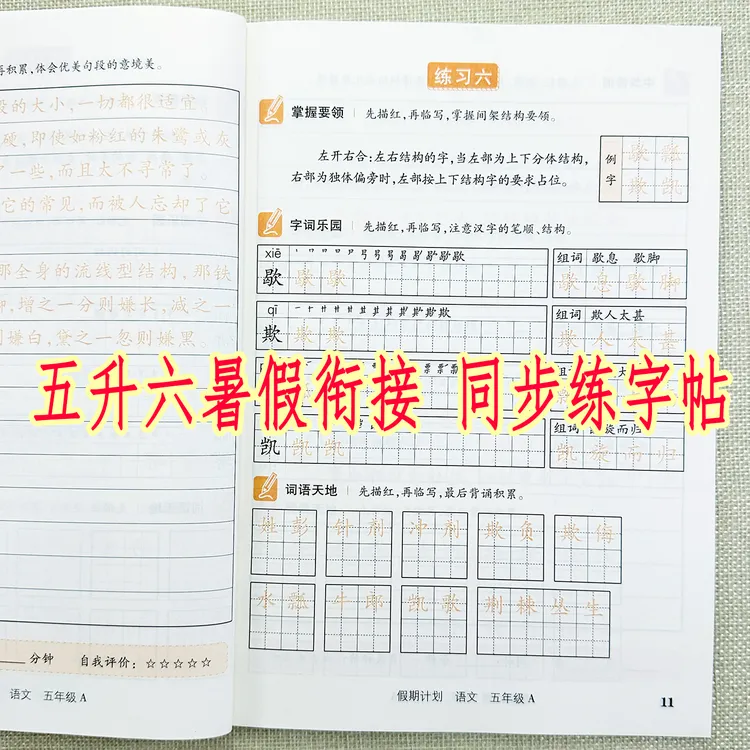 再积累,体会优美句段的意境美。
段的大小,一切都很适宜
硬,即使如粉红的朱鹭或灰
了一些,而且太不寻常了。
它的常见,而被人忘却了它
那全身的流线型结构,那铁
脚,增之一分则嫌长,减之一
则嫌白,黛之一忽则嫌黑。
分钟 自我评价:☆☆☆☆☆
语文 五年级 A
练习六
掌握要领 先描红,再临写,掌握间架结构要领。
左开右合:左右结构的字,当左部为上下分体结构,
右部为独体偏旁时,左部按上下结构字的要求占位。
例字
歇 瓢
欺 凯
字词乐园 先描红,再临写,注意汉字的笔顺、结构。
xiē
歇 歇 歇
组词 歇息 歇脚
歇 息 歇 脚
qī
欺 欺 欺
组词 欺人太甚
欺 人 太 甚
五升六暑假衔接 同步练字帖
凯 凯 凯
组词 凯旋而归
凯 旋 而 归
词语天地 先描红,再临写,最后背诵积累。
姓 彭 钟 剂 冲 剂 欺 负 欺 侮
水 瓢 牛 郎 凯 歌 荆 棘 丛 生
假期计划 语文 五年级 A
11